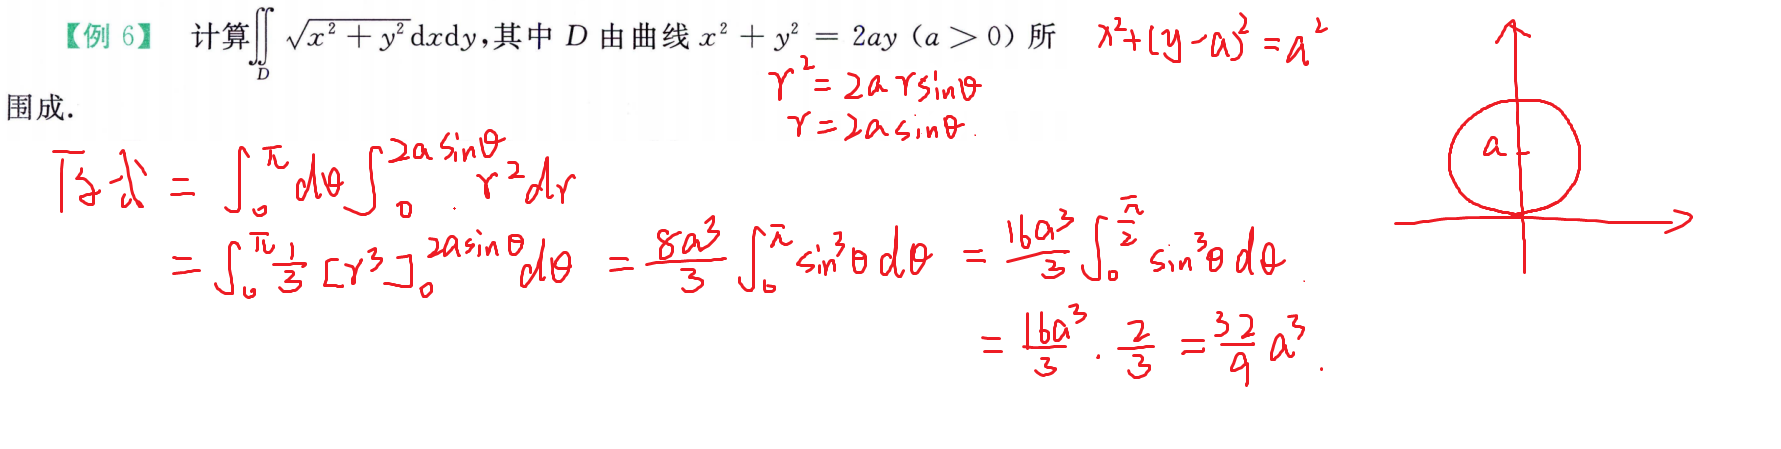 【例 6】 计算∬_D √(x² + y²) dxdy,其中 D 由曲线 x² + y² = 2ay (a > 0) 所
围成.
x²+(y-a)²=a²
r²=2a rsinθ
r=2a sinθ.
a
原式 = ∫₀^π dθ ∫₀^{2a sinθ} r² dr
= ∫₀^π 1/3 [r³]₀^{2a sinθ} dθ = 8a³/3 ∫₀^π sin³θ dθ = 16a³/3 ∫₀^{π/2} sin³θ dθ
= 16a³/3 · 2/3 = 32/9 a³.